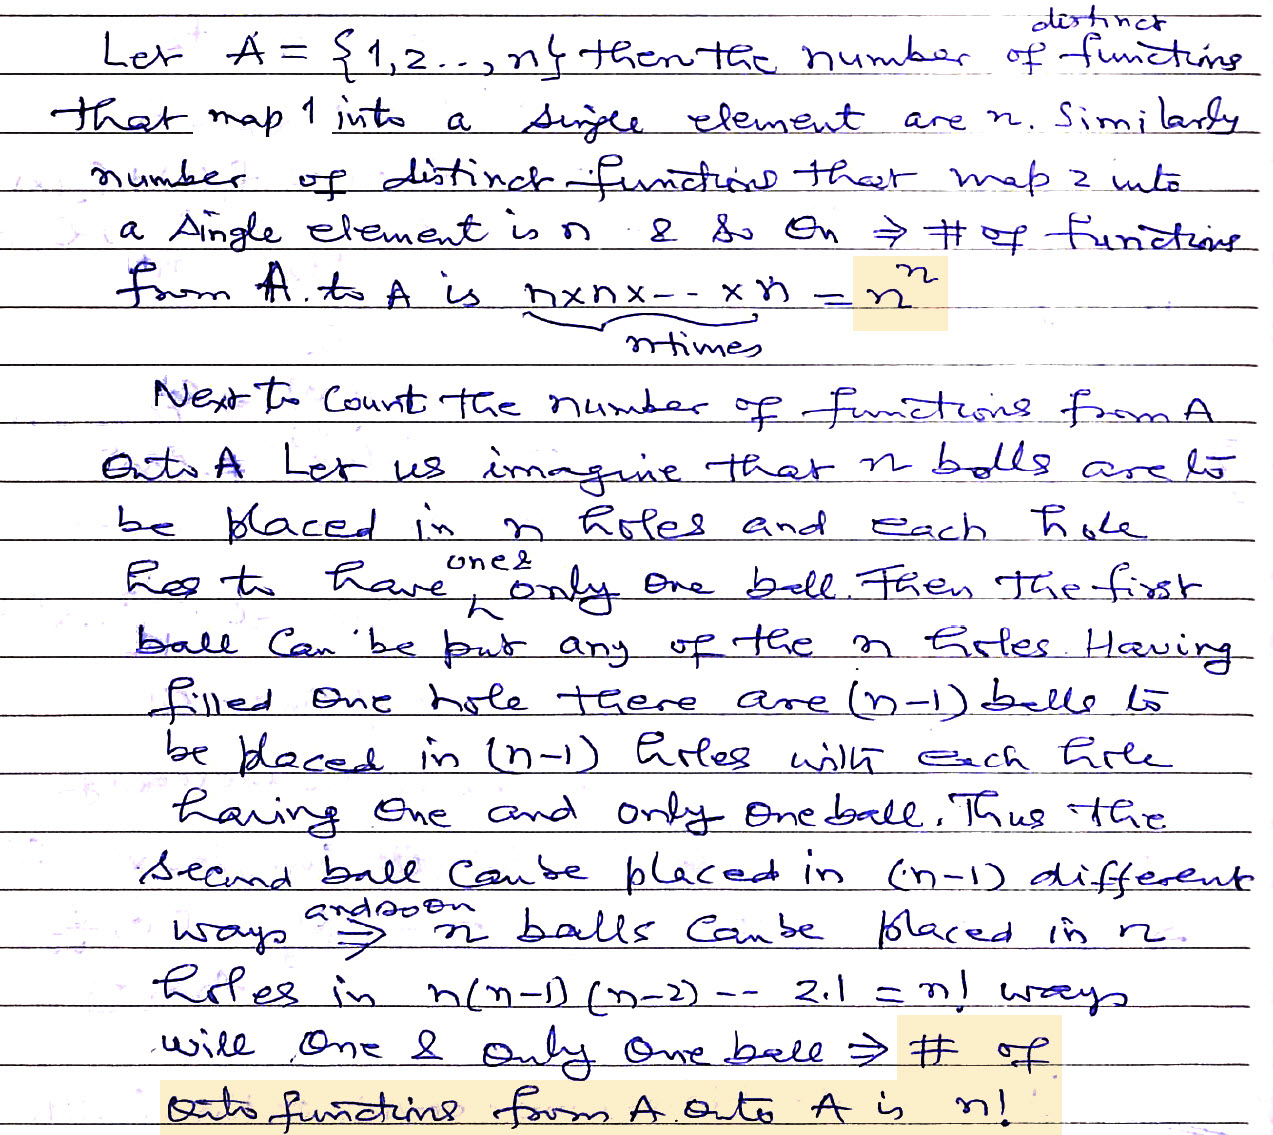 Let A = {1,2..,n} then the number of distinct functions
that map 1 into a single element are n. Similarly
number of distinct functions that map 2 into
a single element is n & so on ⇒ # of functions
from A to A is n×n×--×n = nⁿ
n times
Next to count the number of functions from A
onto A Let us imagine that n balls are to
be placed in n holes and each hole
has to have one & only one ball. Then the first
ball can be put any of the n holes. Having
filled one hole there are (n-1) balls to
be placed in (n-1) holes with each hole
having one and only one ball. Thus the
second ball can be placed in (n-1) different
ways and so on ⇒ n balls can be placed in n
holes in n(n-1)(n-2)-- 2.1 = n! ways
will one & only one ball ⇒ # of
onto functions from A onto A is n!